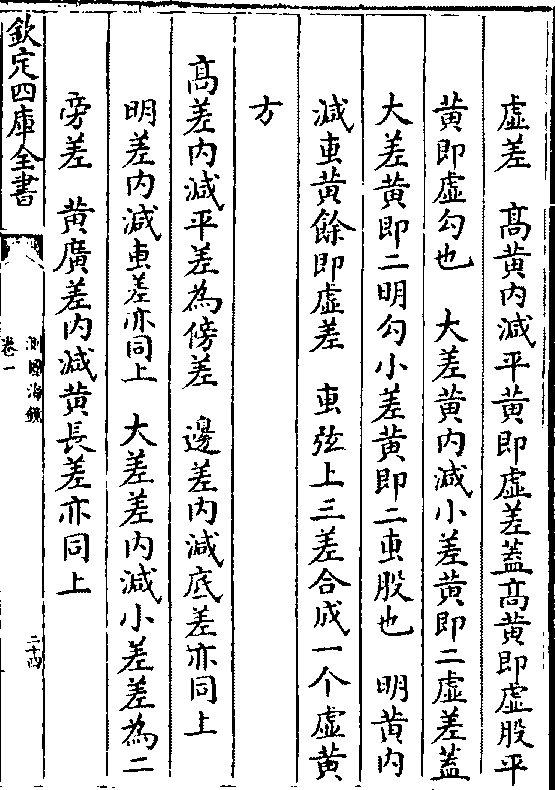 虛差　髙黄内减平黄即虛差葢髙黄即虛股平
黄即虛勾也　大差黄内减小差黄即二虛差葢
大差黄即二明勾小差黄即二叀股也　明黄内
减叀黄餘即虛差　叀弦上三差合成一个虛黄
方
髙差内减平差為傍差　邊差内减底差亦同上
明差内减叀差亦同上　大差差内减小差差為二
旁差　黄廣差内减黄長差亦同上
欽定四庫全書
測圓海鏡
卷一
二十四